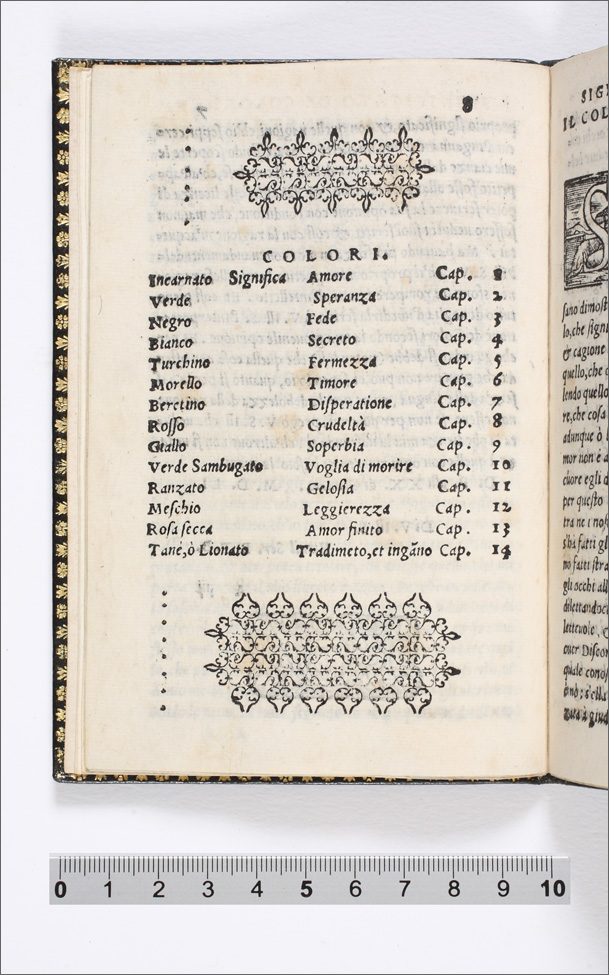 8
COLORI.
Incarnato Significa Amore Cap. 1
Verde Speranza Cap. 2
Negro Fede Cap. 3
Bianco Secreto Cap. 4
Turchino Fermezza Cap. 5
Morello Timore Cap. 6
Beretino Disperatione Cap. 7
Rosso Crudeltà Cap. 8
Giallo Soperbia Cap. 9
Verde Sambugato Voglia di morire Cap. 10
Ranzato Gelosia Cap. 11
Meschio Leggierezza Cap. 12
Rosa secca Amor finito Cap. 13
Tané, ò Lionato Tradimēto, et ingāno Cap. 14
SIG
IL COL
S
sano dimost
lo, che signi
& cagione
quello, che q
lendo quello
re, che cosa
adunque ò
mor non è a
cuore egli d
per questo
tra ne i nos
s'ha fatti gl
no fatti stra
gli occhi all
dilettandoci
letteuole. C
ouer Discor
quale conos
onò: s'ella
zata à giud
0 1 2 3 4 5 6 7 8 9 10